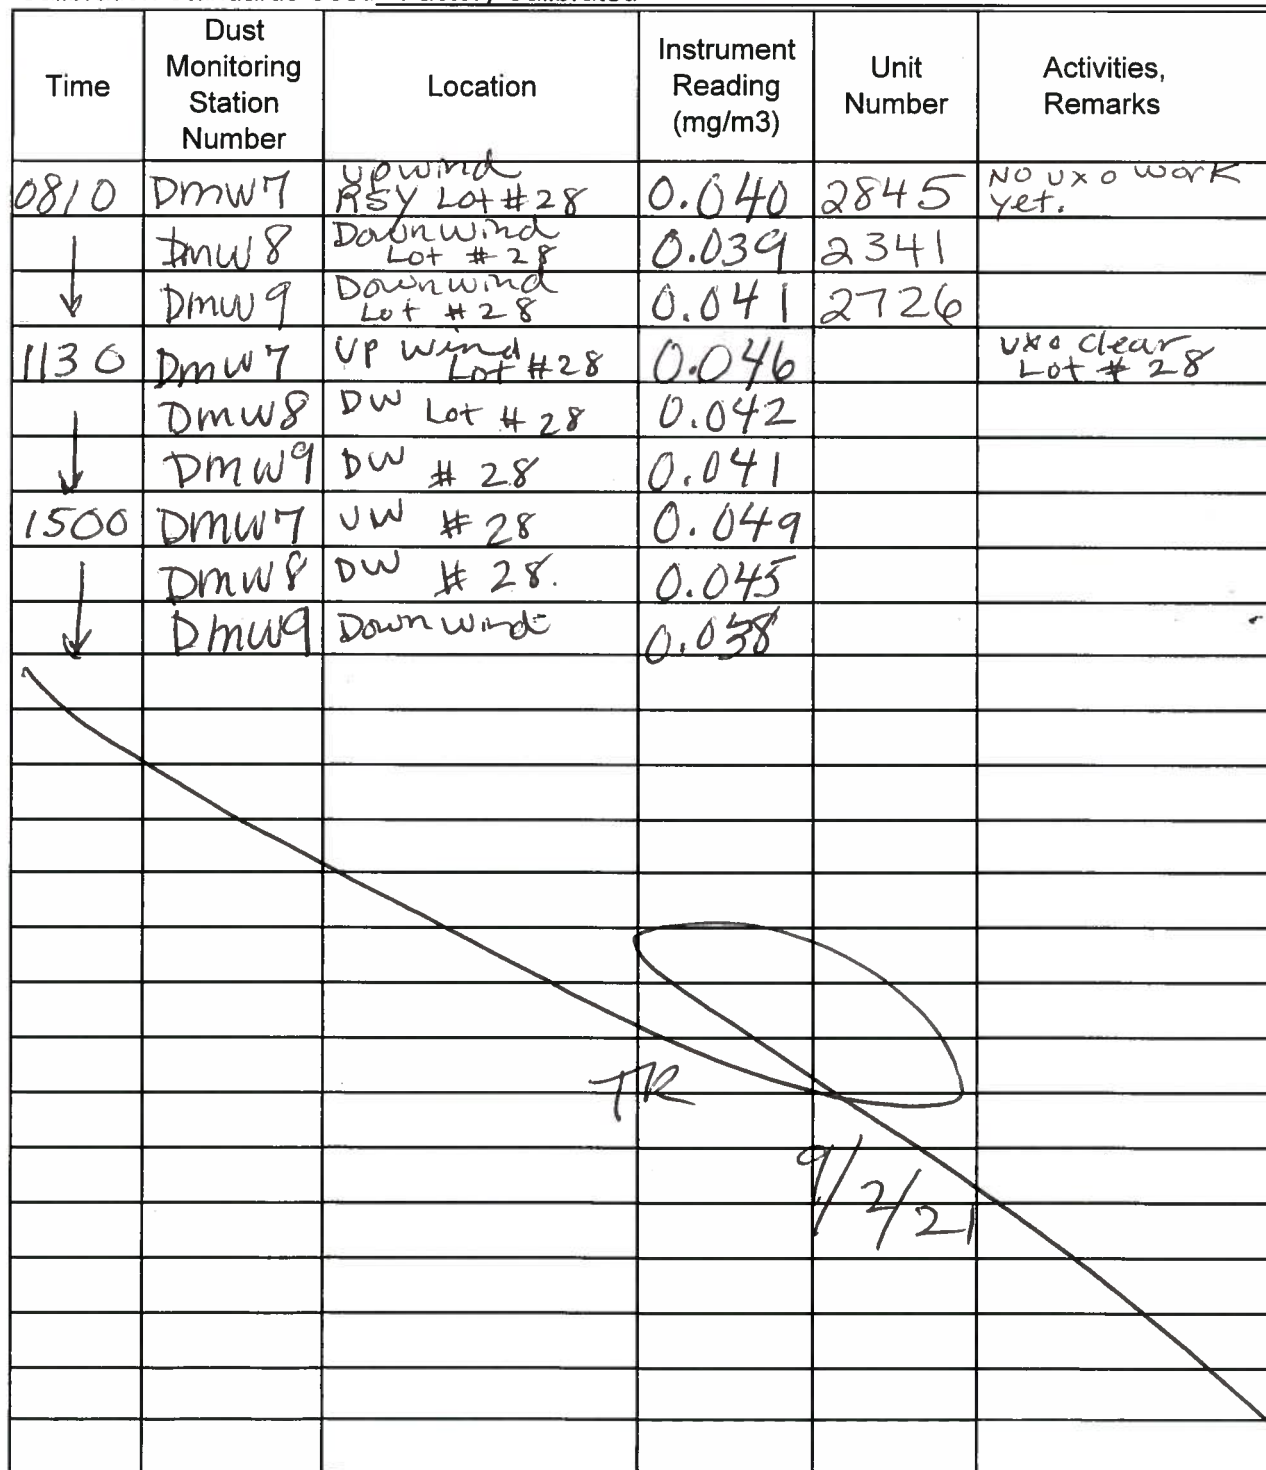 Factory Calibrated
Time
Dust Monitoring Station Number
Location
Instrument Reading (mg/m3)
Unit Number
Activities, Remarks
0810 Dmw7 upwind RSY Lot #28 0.040 2845 No uxo work yet.
Dmw8 Downwind Lot #28 0.039 2341
Dmw9 Downwind Lot #28 0.041 2726
1130 Dmw7 UP wind Lot #28 0.046 uxo clear Lot #28
Dmw8 DW Lot #28 0.042
Dmw9 DW #28 0.041
1500 Dmw7 UW #28 0.049
Dmw8 DW #28. 0.045
Dmw9 Downwind
TR
9/2/21